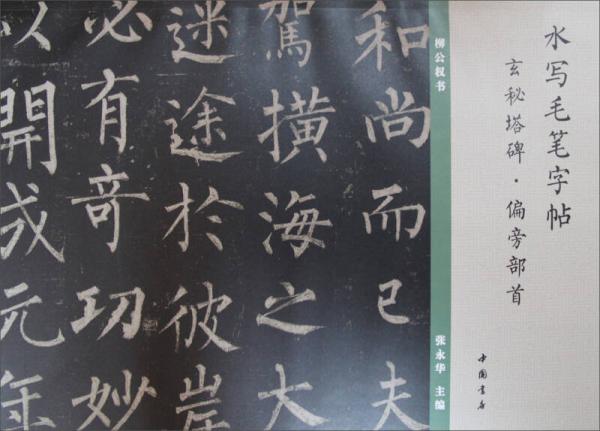 水写毛笔字帖
玄秘塔碑·偏旁部首
中国书店
柳公权书
张永华 主编
和尚而已夫
驾横海之大
迷途於彼岸
必有奇功妙
以開成元年